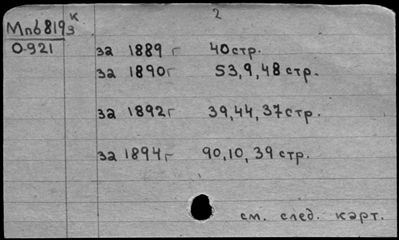 2
Мпб819зк
О-921
за 1889 г 40 стр.
за 1890 г 53,9,48 стр.
за 1892 г 39,44,37 стр.
за 1894 г 90,10,39 стр.
см. след. карт.